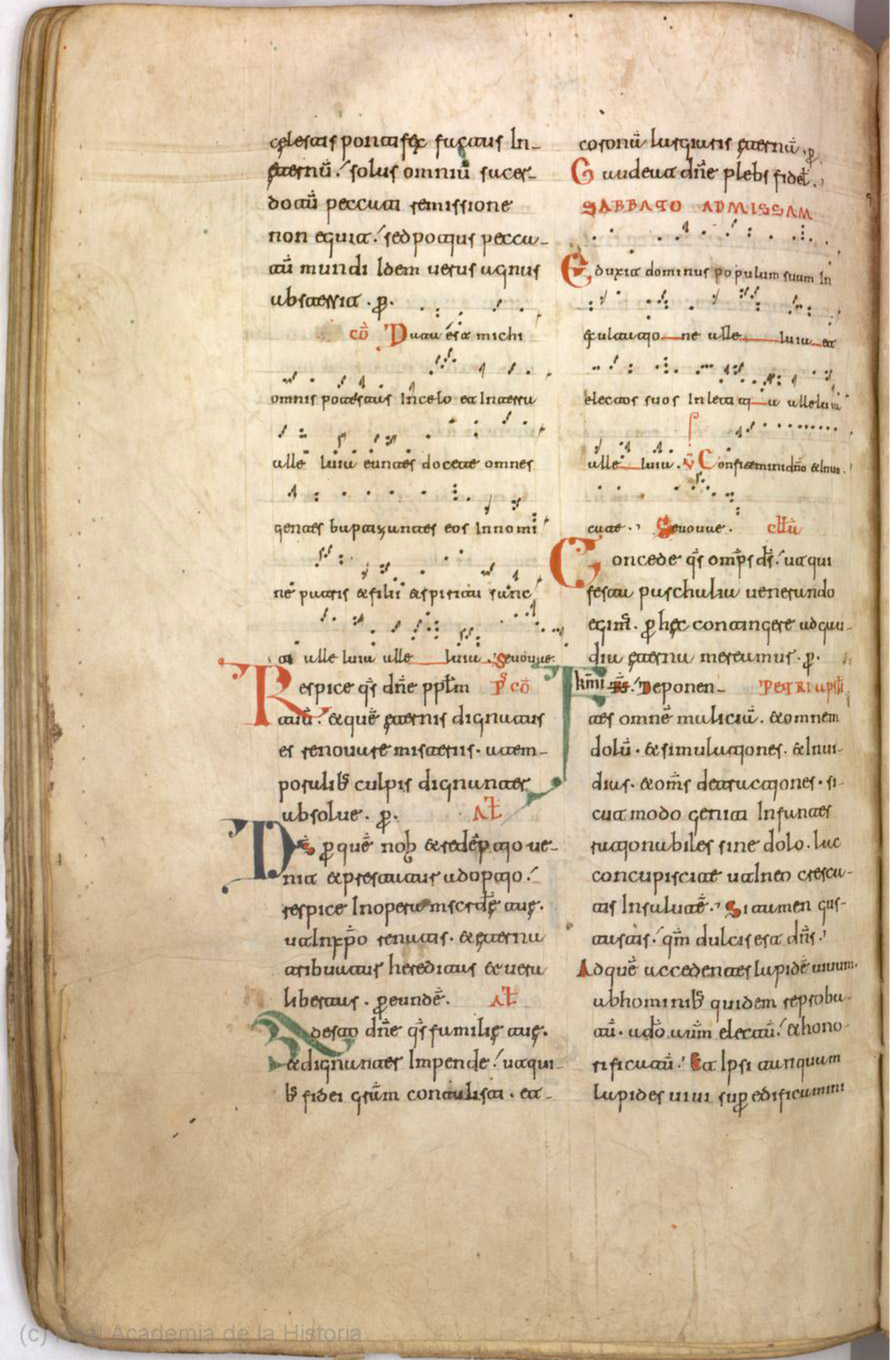 celestis pontifex factus In-
eternū. solus omniū sacer-
dotū peccati remissione
non eguit. sed potius pecca-
tū mundi Idem uerus agnus
abstersit. ꝑ.
cō Data est michi
omnis potestas In celo et In terra
alle luia euntes docete omnes
gentes baptizantes eos In nomi
ne patris & filii & spiritu sanc
ti alle luia alle luia. Seuouae.
Respice qs̄ dn̄e pplm̄ Pͦ cō
tuū. & quē eternis dignatus
es renouare misteriis. a tem-
poralibꝰ culpis dignanter
absolue. ꝑ. Alt̄
Ds̄ ꝑ quē nob̄ & redēptio ue-
nit & prestatur adoptio.
respice In opera misēdie tuę.
ut In xp̄o renatis. & eterna
tribuatur hereditas & uera
libertas. ꝑ eundē. Alt̄
Adesto dn̄e qs̄ familię tuę.
& dignanter Impende. ut qui
bꝰ fidei grām contulisti. et-
coronā largiaris eternā. ꝑ
Gaudeat dn̄e plebs fidel.
SABBATO AD MISSAM
Eduxit dominus populum suum In
exultatio ne alle luia et
electos suos In leti ti a alleluia
alle luia. V̄ Confitemini dn̄o & Inuo.
cate. Seuouae. cll̄a
Concede qs̄ omp̄s ds̄. ut qui
festa paschalia uenerando
egim̄. ꝑ hęc contingere ad gau-
dia eterna mereamur. ꝑ.
kmi. Deponen- PETRI apli
tes omnē maliciā. & omnem
dolū. & simulationes. & Inui-
dias. & om̄s detractiones. si-
cut modo geniti Infantes
rationabiles sine dolo. lac
concupiscite ut In eo cresca-
tis In salutē. Si tamen gus-
tastis. qm̄ dulcis est dn̄s.
Ad quē accedentes lapidē uiuum.
ab hominibꝰ quidem reproba-
tū. a dō autm̄ electū. & hono-
rificatū. Et Ipsi tanquam
lapides uiui supꝑ edificamini